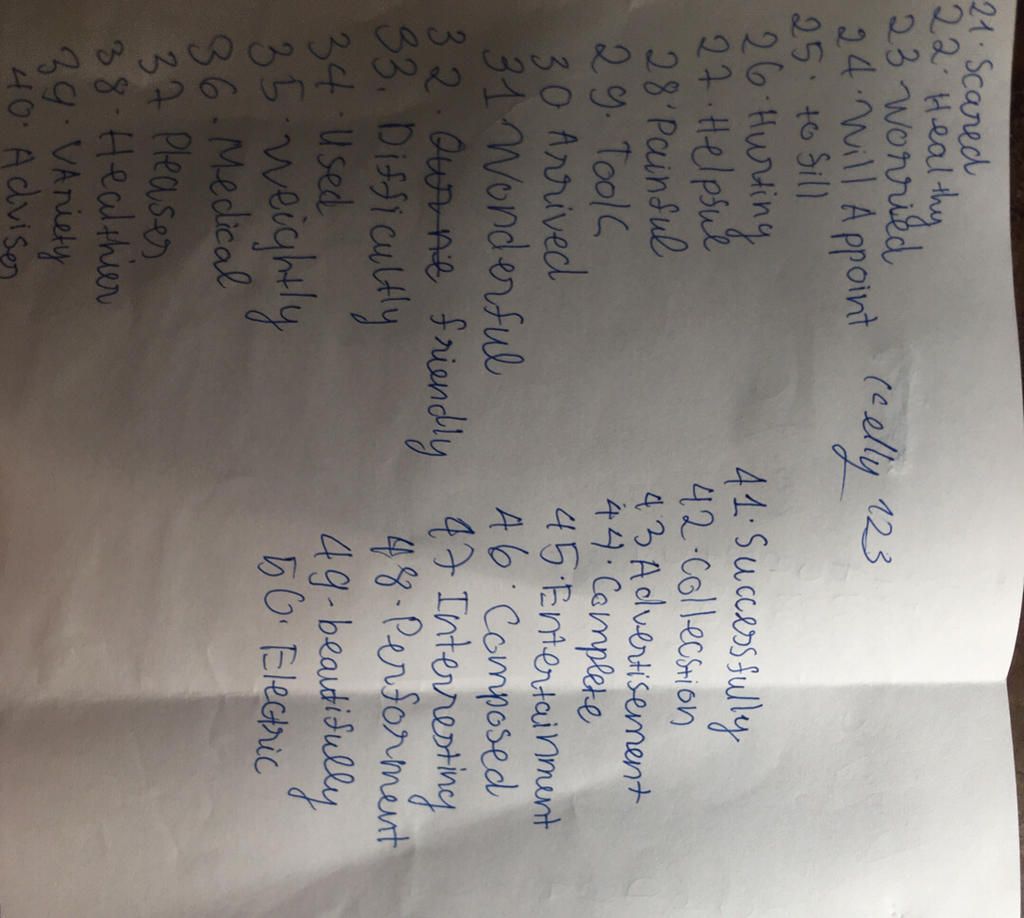 21. Scared
22. Healthy
23 Worried
24. Will Appoint
25. to fill
26. Hurting
27. Helpful
28. Painful
29. Took
30 Arrived
31 Wonderful
32. friendly
33. Difficultly
34. Used
35. Weightly
36. Medical
37 Pleaser
38. Healthier
39. VAriety
40. Adviser
Kelly 123
41. Successfully
42. Collection
43 Advertisement
44. Complete
45. Entertainment
46. Composed
47 Interresting
48. Performent
49. beautifully
50. Electric